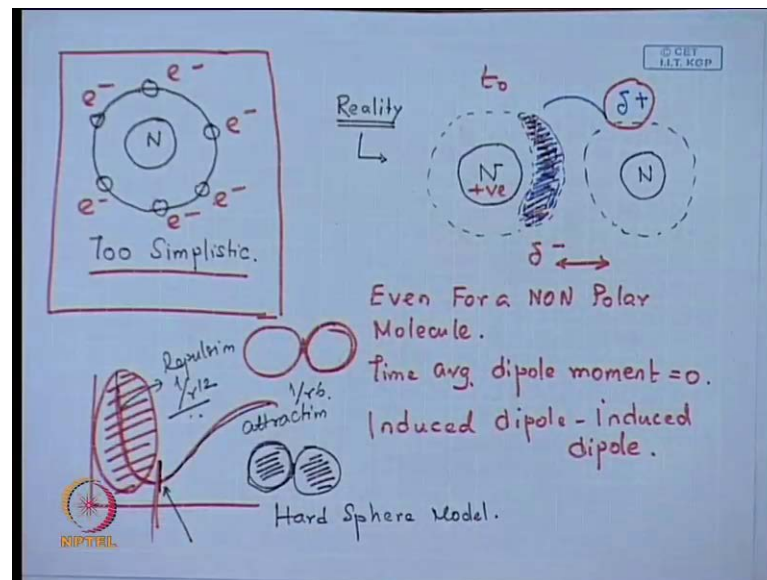 © CET
I.I.T. KGP
e⁻
e⁻
e⁻
e⁻
e⁻
e⁻
N
Too Simplistic.
Reality
t₀
N
+ve
δ⁻
δ+
N
Even For a NON Polar
Molecule.
Time avg. dipole moment = 0.
Induced dipole - induced
dipole.
Repulsion
1/r12
1/r6.
attraction
Hard Sphere Model.
NPTEL